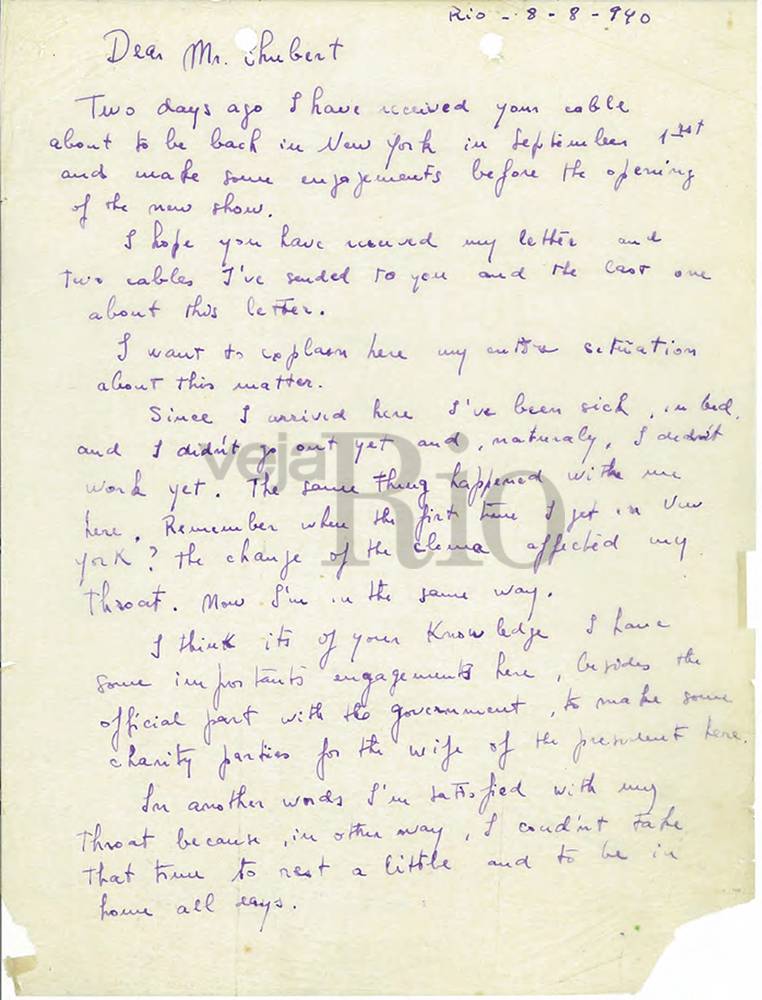 Rio - 8 - 8 - 940
Dear Mr. Shubert
Two days ago I have received your cable
about to be back in New York in September 1rst
and make some engagements before the opening
of the new show.
I hope you have received my letter and
two cables I've sended to you and the last one
about this letter.
I want to explain here my entire situation
about this matter.
Since I arrived here I've been sick, in bed,
and I didn't go out yet and, naturaly, I didn't
work yet. The same thing happened with me
here. Remember when the first time I get in New
York? the change of the clima affected my
throat. Now I'm in the same way.
I think its of your Knowledge I have
some importants engagements here, besides the
official part with the government, to make some
charity parties for the wife of the president here.
In another words I'm satisfied with my
throat because, in other way, I coudn't take
that time to rest a little and to be in
home all days.
veja Rio